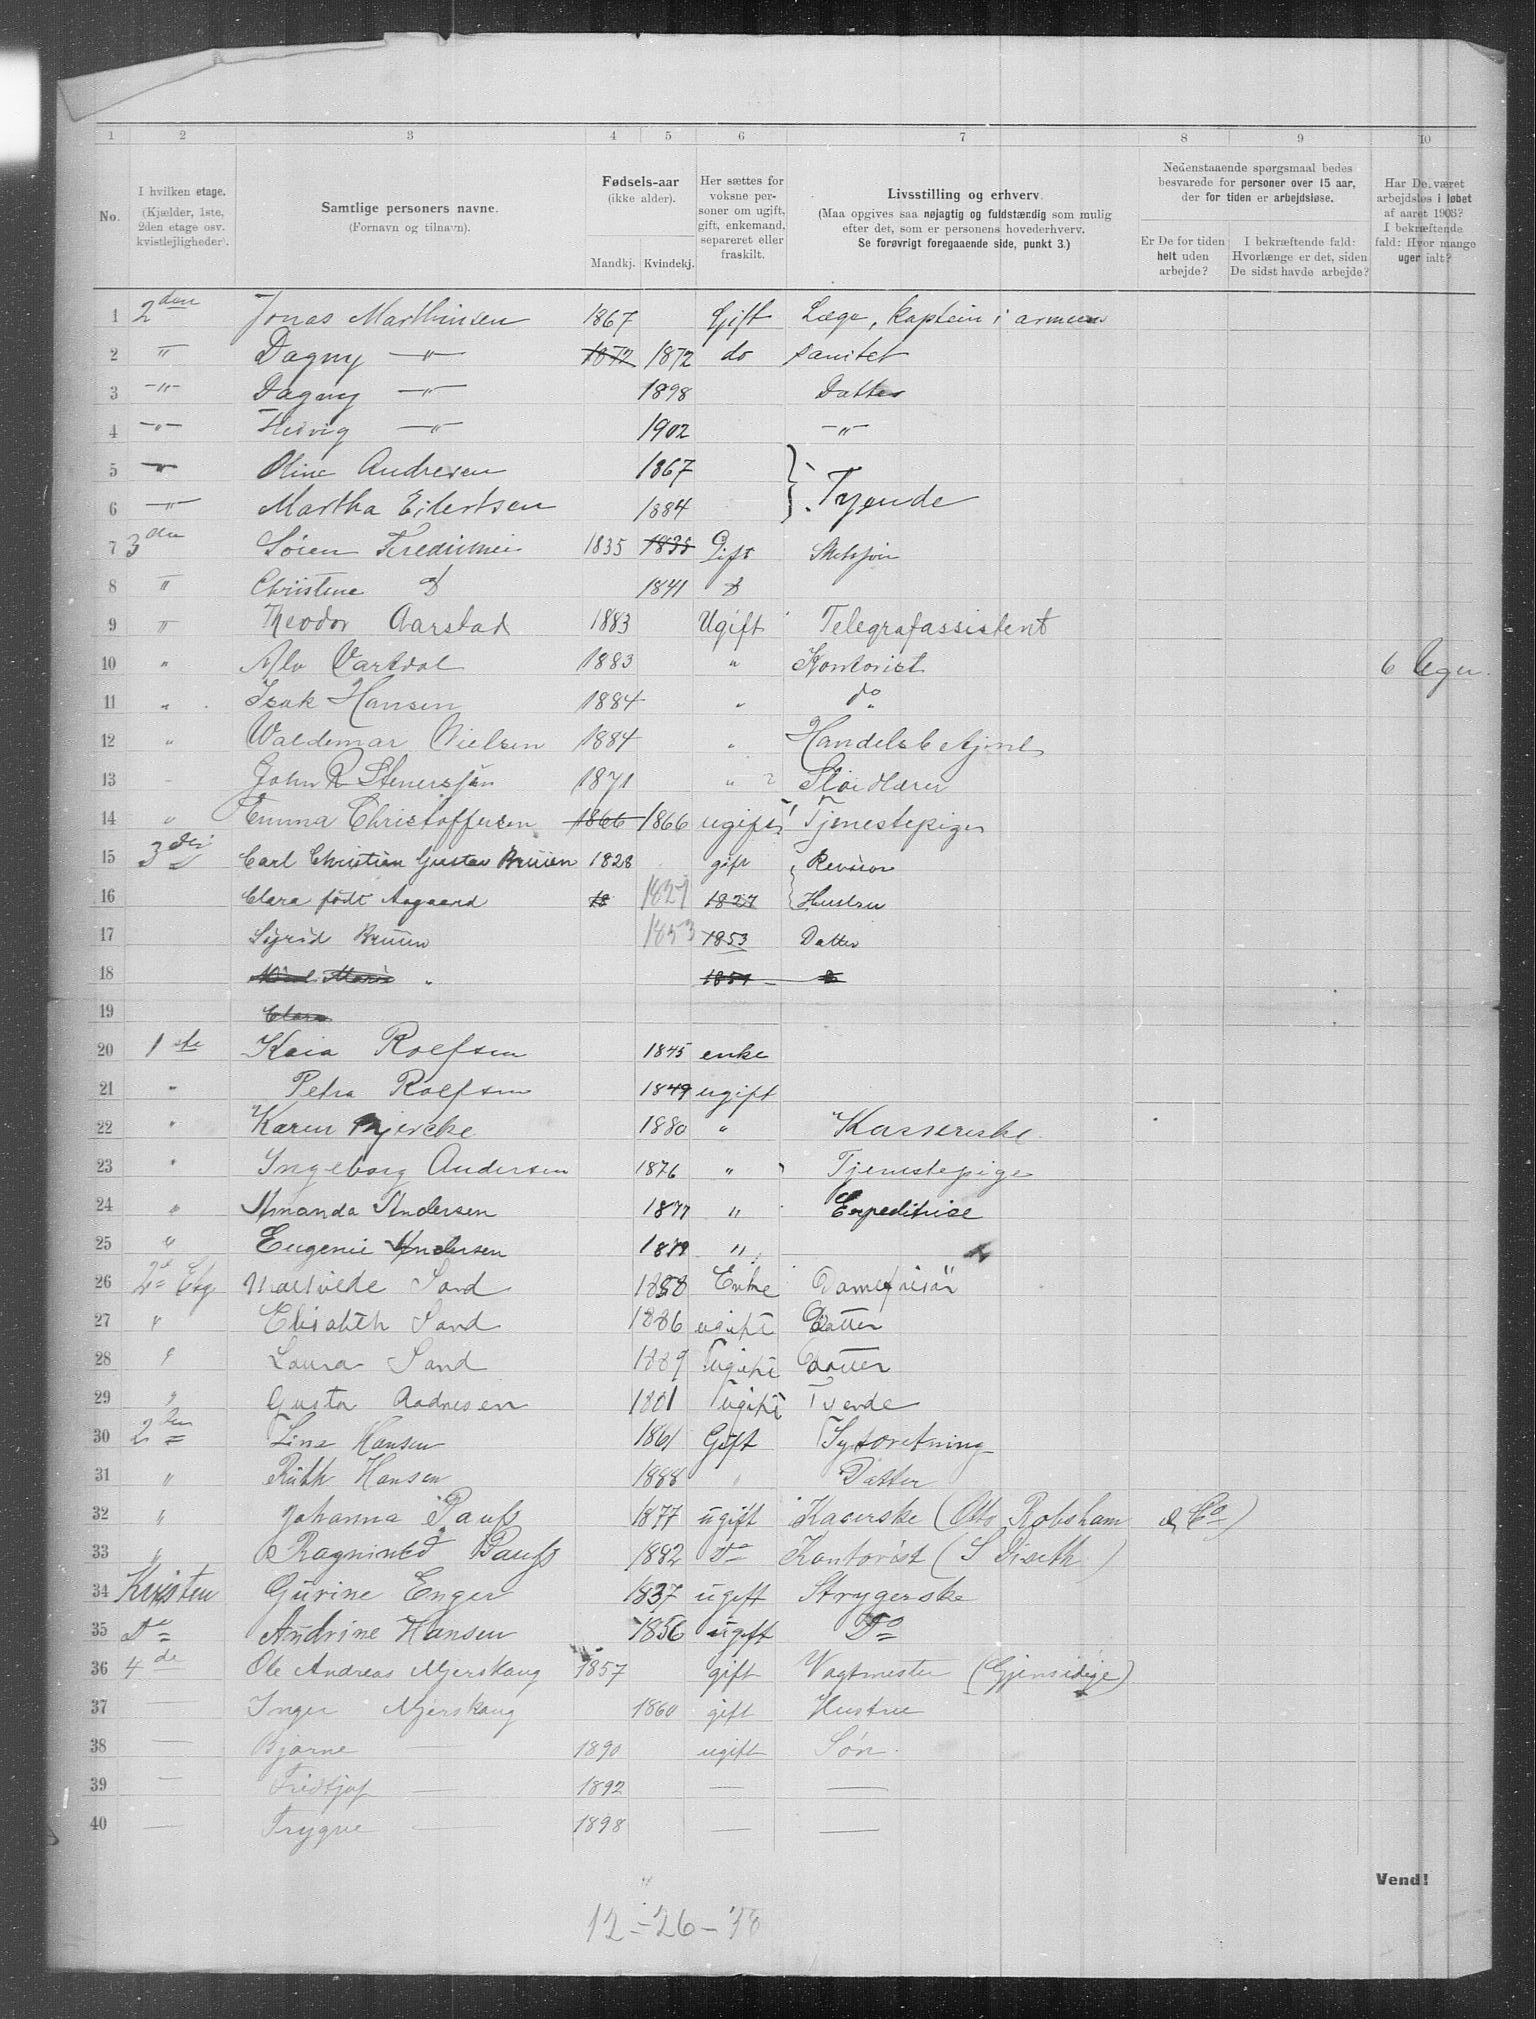 1 2 3 4 5 6 7 8 9 10
No.
I hvilken etage. (Kjælder, 1ste, 2den etage osv. kvistleiligheder).
Samtlige personers navne. (Fornavn og tilnavn).
Fødsels-aar (ikke alder).
Mandkj. Kvindekj.
Her sættes for voksne personer om ugift, gift, enkemand, separeret eller fraskilt.
Livsstilling og erhverv. (Maa opgives saa nøjagtig og fuldstændig som mulig efter det, som er personens hovederhverv. Se forøvrigt foregaaende side, punkt 3.)
Nedenstaaende spørgsmaal bedes besvarede for personer over 15 aar, der for tiden er arbejdsløse.
Er De for tiden helt uden arbejde?
I bekræftende fald: Hvorlænge er det, siden De sidst havde arbejde?
Har De været arbejdsløs i løbet af aaret 1903? I bekræftende fald: Hvor mange uger ialt?
1 2den Jonas Marthinsen 1867 Gift Læge, kaptein i armeens
2 " Dagny —"— 1872 1872 do sanitet
3 —"— Dagny —"— 1898 Datter
4 —"— Hedvig —"— 1902 —"—
5 —"— Oline Andresen 1867
6 —"— Martha Eilertsen 1884 } Tyende
7 3die Søren 1835 1835 Gift
8 " Christene D 1841 D
9 " Theodor Aarstad 1883 Ugift Telegrafassistent
10 " Alv Vartdal 1883 " Kontorist 6 Uger.
11 " Isak Hansen 1884 " do
12 " Waldemar Nielsen 1884 " Handelsbetjent
13 John R Stenersen 1871 "
14 " Emma Christoffersen 1866 1866 ugift Tjenestepige
15 3die Carl Christian Gustav Bruun 1828 gift Revisor
16 Clara født Aagaard 18 1827 1827 Hustru
17 Sigrid Bruun 1853 1853 Datter
18 Marie "
19 Clara
20 1ste Kaia Rolfsen 1845 enke
21 " Petra Rolfsen 1849 ugift
22 " Karen Bjercke 1880 " Kassererske
23 " Ingeborg Andersen 1876 " Tjenestepige
24 " Amanda Andersen 1877 " Expeditrise
25 " Eugenie Andersen 1879 "
26 2d Etg. Mathilde Sand 1858 Enke Damefrisør
27 " Elisabeth Sand 1886 ugift Datter
28 " Laura Sand 1889 ugift Datter
29 " Gusta Andresen 1881 ugift Tyende
30 2den Lina Hansen 1861 Gift Syforetning
31 " Ruth Hansen 1888 " Datter
32 " Johanna Pauss 1877 ugift Kaserske (Otto Robsham & Co)
33 " Ragnhild Pauss 1882 Do Kontorist (S Diseth)
34 Kvisten Gurine Enger 1837 ugift Strygerske
35 Do Andrine Hansen 1856 ugift Do
36 4de Ole Andreas Myerskaug 1857 gift Vagtmester (Gjensidige)
37 — Inger Myerskaug 1860 gift Hustru
38 — Bjarne — 1890 ugift Søn.
39 — Fridtjof — 1892 — —
40 — Trygve — 1898 — —
Vend!
12-26-38